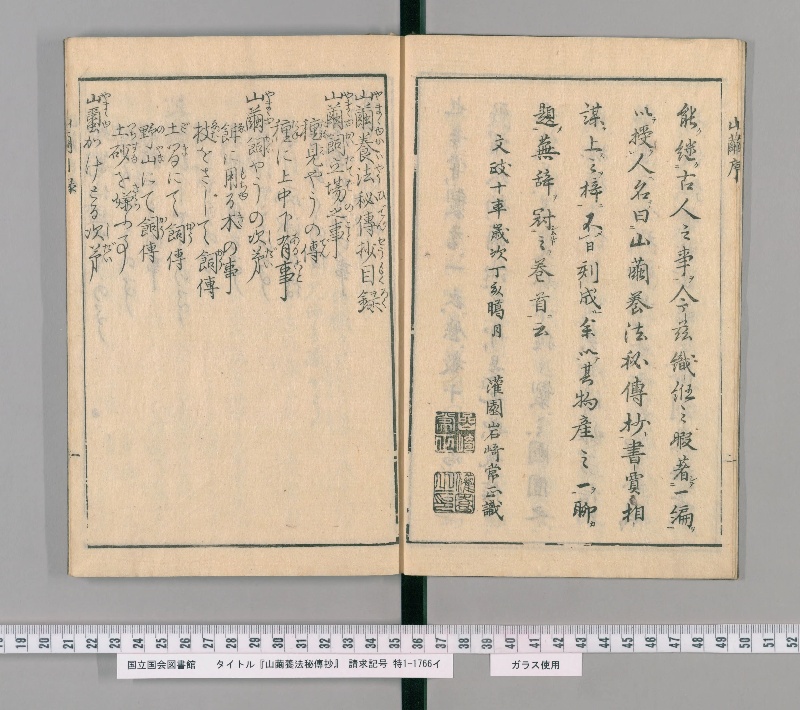 山繭序
能継古人之事今茲織紝之暇著一編
以授人名曰山繭養法秘傳抄書賈相
謀上之梓不日刻成余以其物産之一聊
題蕪辞冠之巻首云
文政十年歳次丁亥暢月 灌園岩崎常正識
山繭養法秘傳抄目録
山繭飼立場之事
種見やうの傳
種に上中下有事
山繭飼やうの次第
餌に用る木の事
枝をさして飼傳
土間にて飼傳
野山にて飼傳
土砂を嫌ふ事
山蚕かけさる次第
国立国会図書館 タイトル『山繭養法秘傳抄』 請求記号 特1-1766イ
ガラス使用
18 19 20 21 22 23 24 25 26 27 28 29 30 31 32 33 34 35 36 37 38 39 40 41 42 43 44 45 46 47 48 49 50 51 52